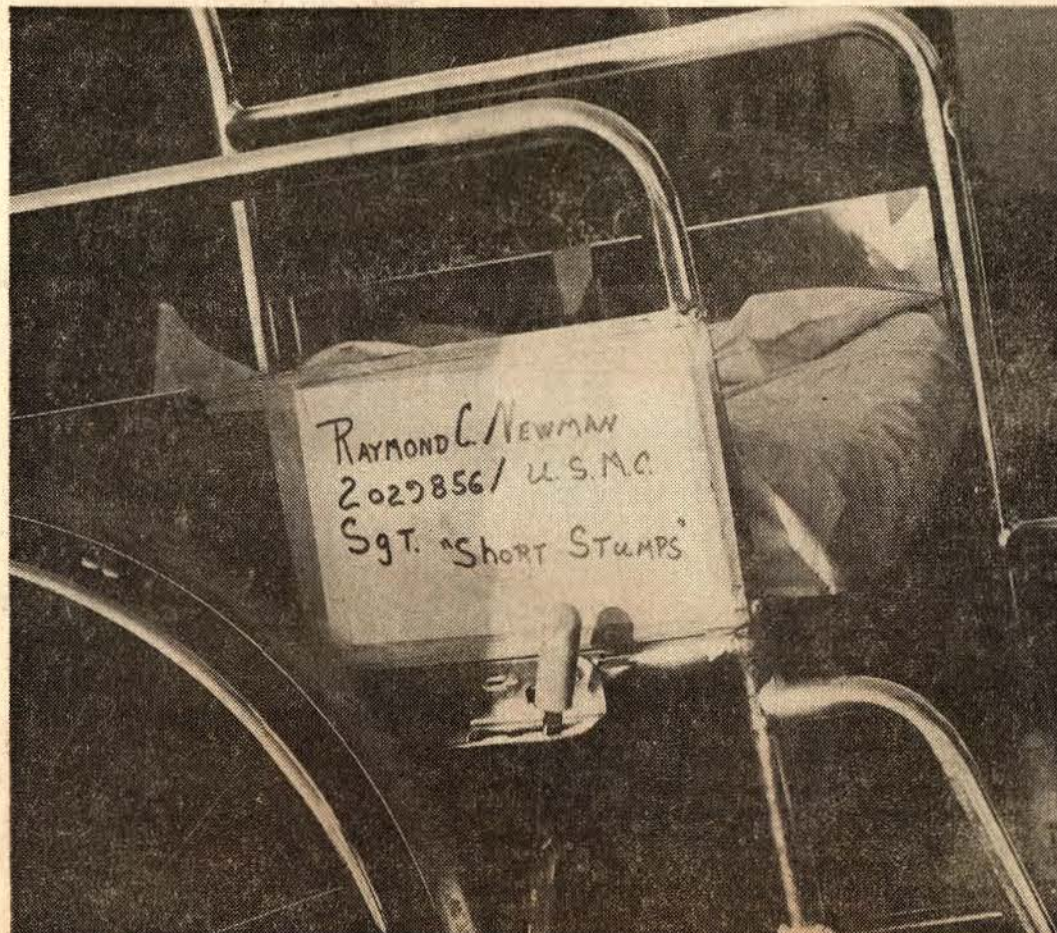 RAYMOND C. NEWMAN
2029856/ U.S.M.C.
SgT. "ShORT STUMPS"